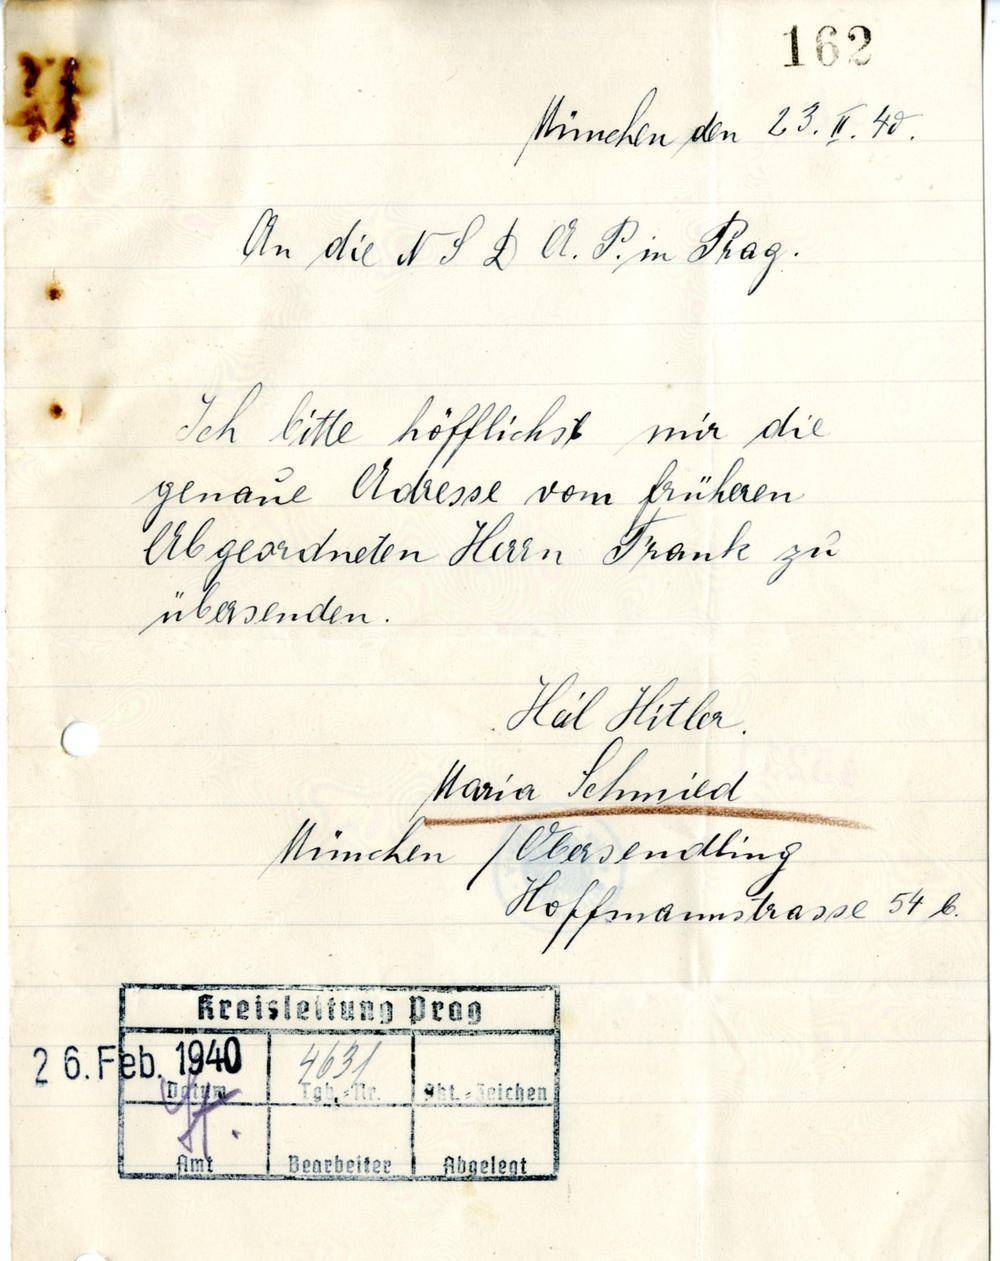 162
München den 23. II. 40.
An die N S D A. P. in Prag.
Ich bitte höfflichst mir die
genaue Adresse vom früheren
Abgeordneten Herrn Frank zu
übersenden.
Heil Hitler.
Maria Schmied
München / Obersendling
Hoffmannstrasse 54 b.
Kreisleitung Prag
26. Feb. 1940 4631
Datum Tgb.-Nr. Akt.-Zeichen
Amt Bearbeiter Abgelegt